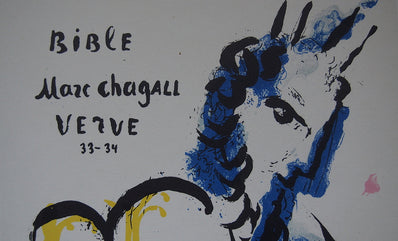 BiBLE
Marc chagall
VERVE
33-34